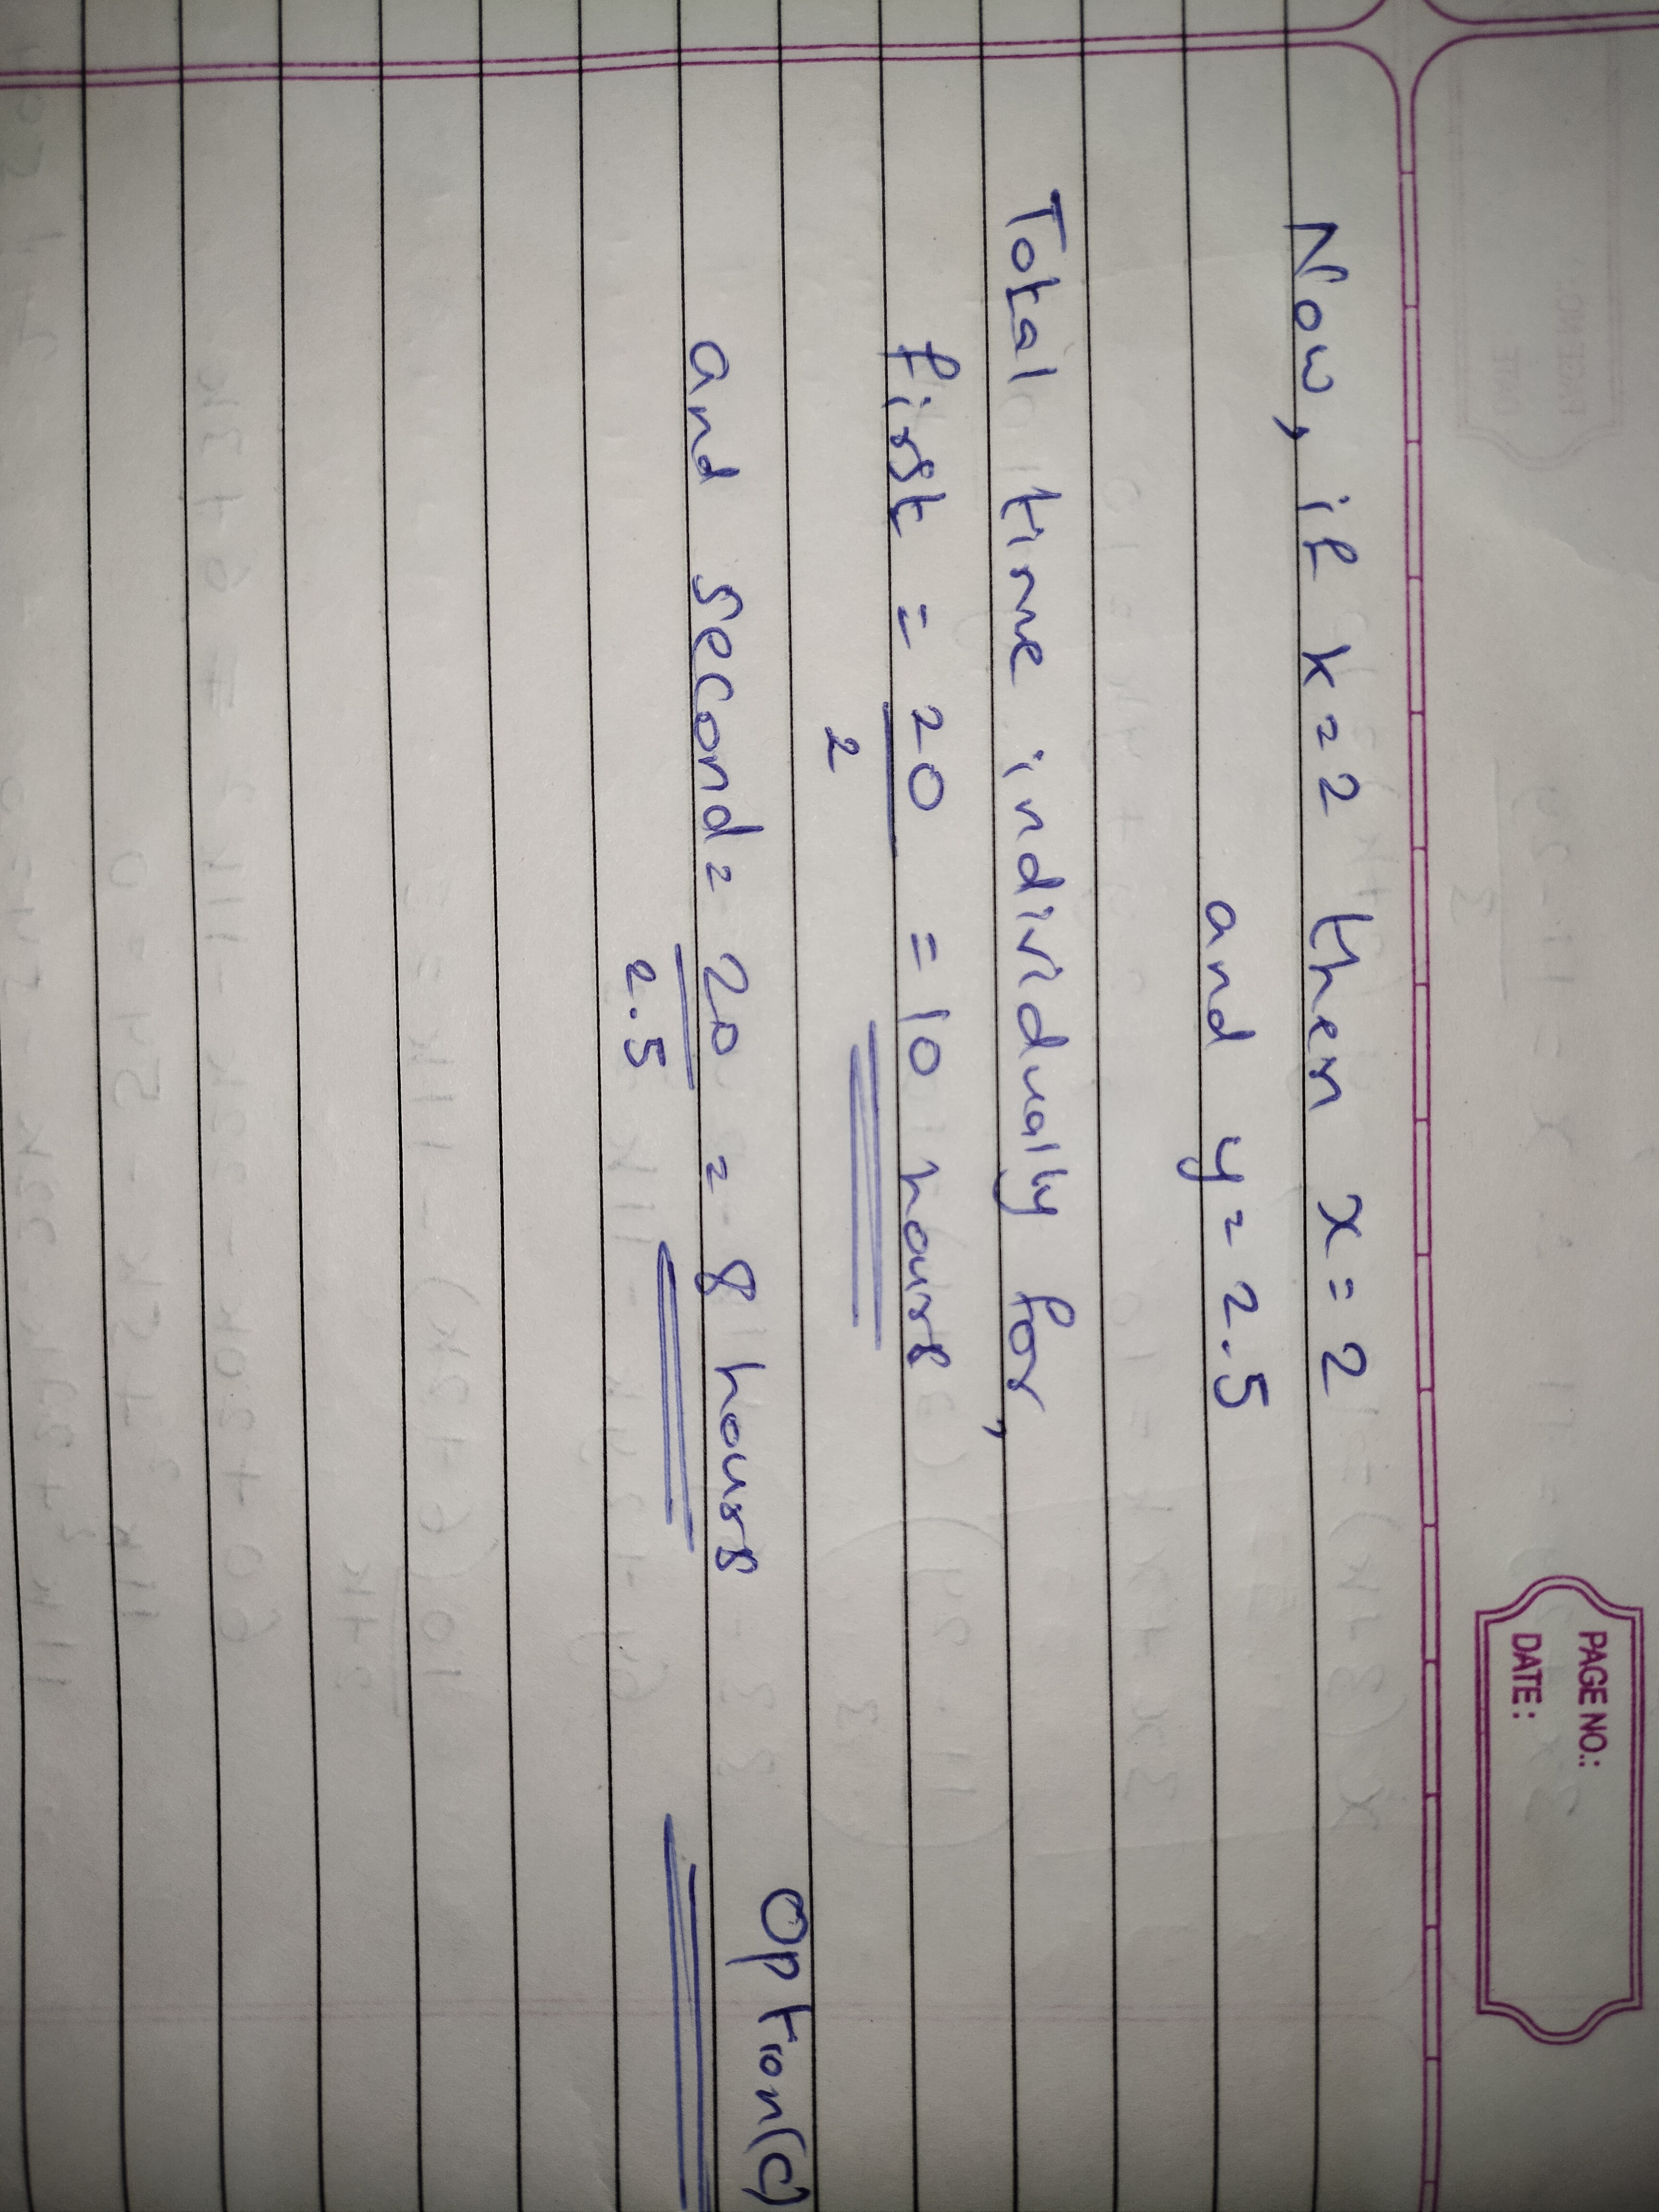 PAGE NO.:
DATE:
Now, if k=2 then x=2
and y=2.5
Total time individually for,
first = 20/2 = 10 hours
and second = 20/2.5 = 8 hours
Option(c)